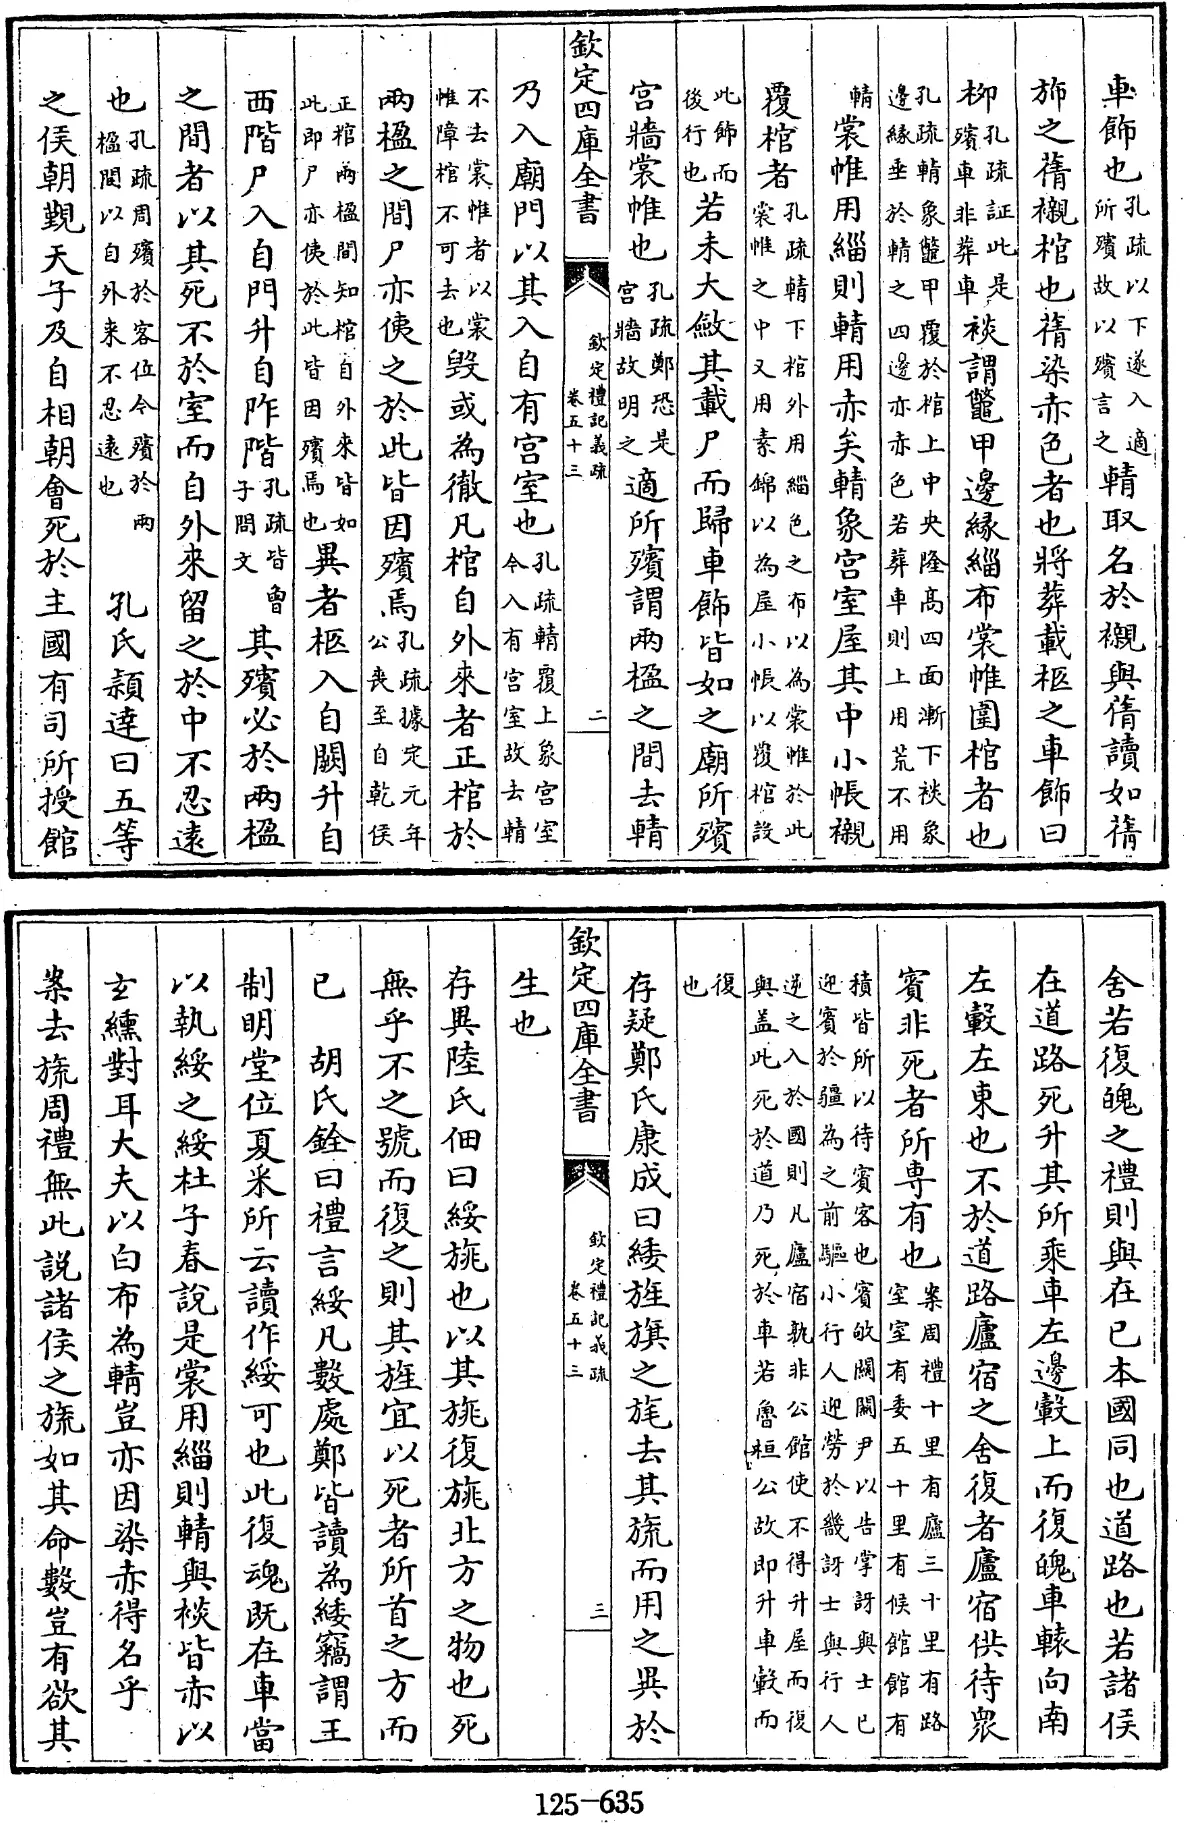 車飾也孔疏以下遂入適所殯故以殯言之輤取名於櫬與蒨讀如蒨
斾之蒨櫬棺也蒨染赤色者也將葬載柩之車飾曰
柳孔疏証此是殯車非葬車裧謂鼈甲邊緣緇布裳帷圍棺者也
孔疏輤象鼈甲覆於棺上中央隆高四面漸下裧象邊緣垂於輤之四邊亦赤色若葬車則上用荒不用
輤裳帷用緇則輤用赤矣輤象宫室屋其中小帳櫬
覆棺者孔疏輤下棺外用緇色之布以為裳帷於此裳帷之中又用素錦以為屋小帳以覆棺設
此飾而後行也若未大斂其載尸而歸車飾皆如之廟所殯
宫牆裳帷也孔疏鄭恐是宫牆故明之適所殯謂兩楹之間去輤
欽定四庫全書
欽定禮記義疏
卷五十三
二
乃入廟門以其入自有宫室也孔疏輤覆上象宫室今入有宫室故去輤
不去裳帷者以裳帷障棺不可去也毀或為徹凡棺自外來者正棺於
兩楹之間尸亦侇之於此皆因殯焉孔疏據定元年公喪至自乾侯
正棺兩楹間知棺自外來皆如此即尸亦侇於此皆因殯焉也異者柩入自闕升自
西階尸入自門升自阼階孔疏皆曾子問文其殯必於兩楹
之間者以其死不於室而自外來留之於中不忍遠
也孔疏周殯於客位今殯於兩楹間以自外来不忍遠也孔氏穎達曰五等
之侯朝覲天子及自相朝會死於主國有司所授館
舍若復魄之禮則與在已本國同也道路也若諸侯
在道路死升其所乘車左邊轂上而復魄車轅向南
左轂左東也不於道路廬宿之舍復者廬宿供待衆
賓非死者所専有也案周禮十里有廬三十里有路室室有委五十里有候館館有
積皆所以待賓客也賓敂關關尹以告掌訝與士已迎賓於疆為之前驅小行人迎勞於畿訝士與行人
逆之入於國則凡廬宿孰非公館使不得升屋而復與盖此死於道乃死於車若魯桓公故即升車轂而
復也
存疑鄭氏康成曰緌旌旗之旄去其旒而用之異於
欽定四庫全書
欽定禮記義疏
卷五十三
三
生也
存異陸氏佃曰綏旐也以其旐復旐北方之物也死
無乎不之號而復之則其旌宜以死者所首之方而
已　胡氏銓曰禮言綏凡數處鄭皆讀為緌竊謂王
制明堂位夏采所云讀作綏可也此復魂既在車當
以執綏之綏杜子春說是裳用緇則輤與裧皆赤以
玄纁對耳大夫以白布為輤豈亦因染赤得名乎
案去旒周禮無此説諸侯之旒如其命數豈有欲其
125-635